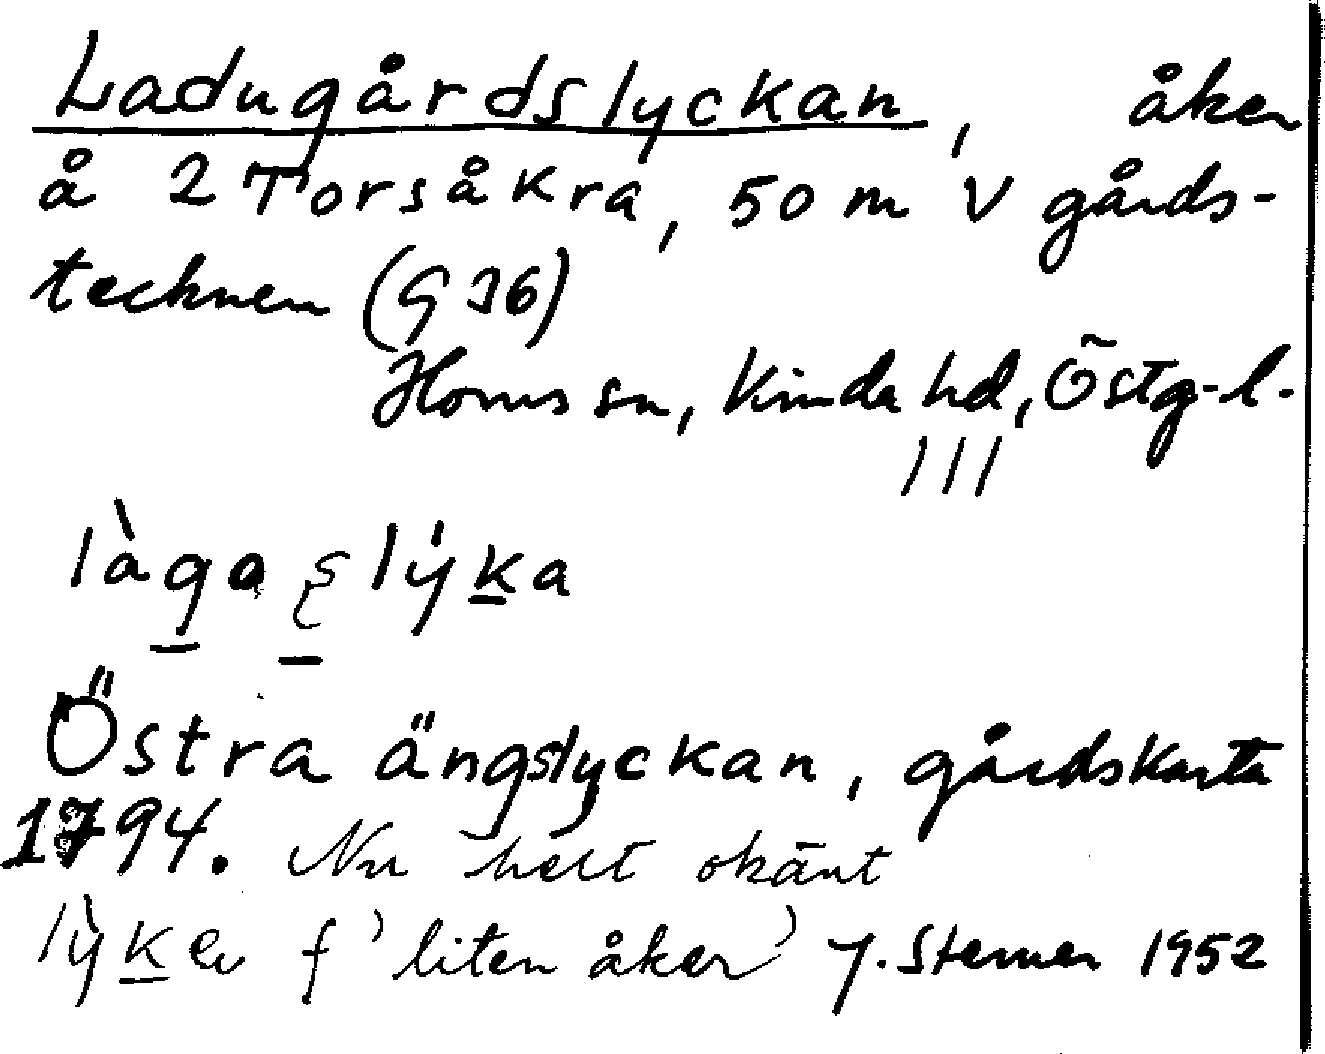 Ladugårdslyckan, åker
å 2 Torsåkra, 50 m V gårds-
tecknen (G 36)
Horns sn, Kinda hd, Östg-l.
III
Östra ängslyckan, gårdskarta
1794. Nu helt okänt
f 'liten åker' J. Sterner 1952